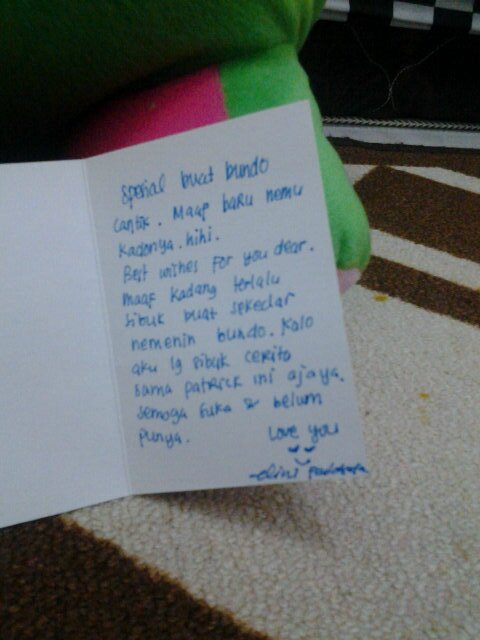 spesial buat bundo
cantik. Maap baru nemu
kadonya. hihi.
Best wishes for you dear.
maaf kadang terlalu
sibuk buat sekedar
nemenin bundo. Kalo
aku lg sibuk cerita
sama patrick ini ajaya.
semoga suka & belum
punya.
Love you